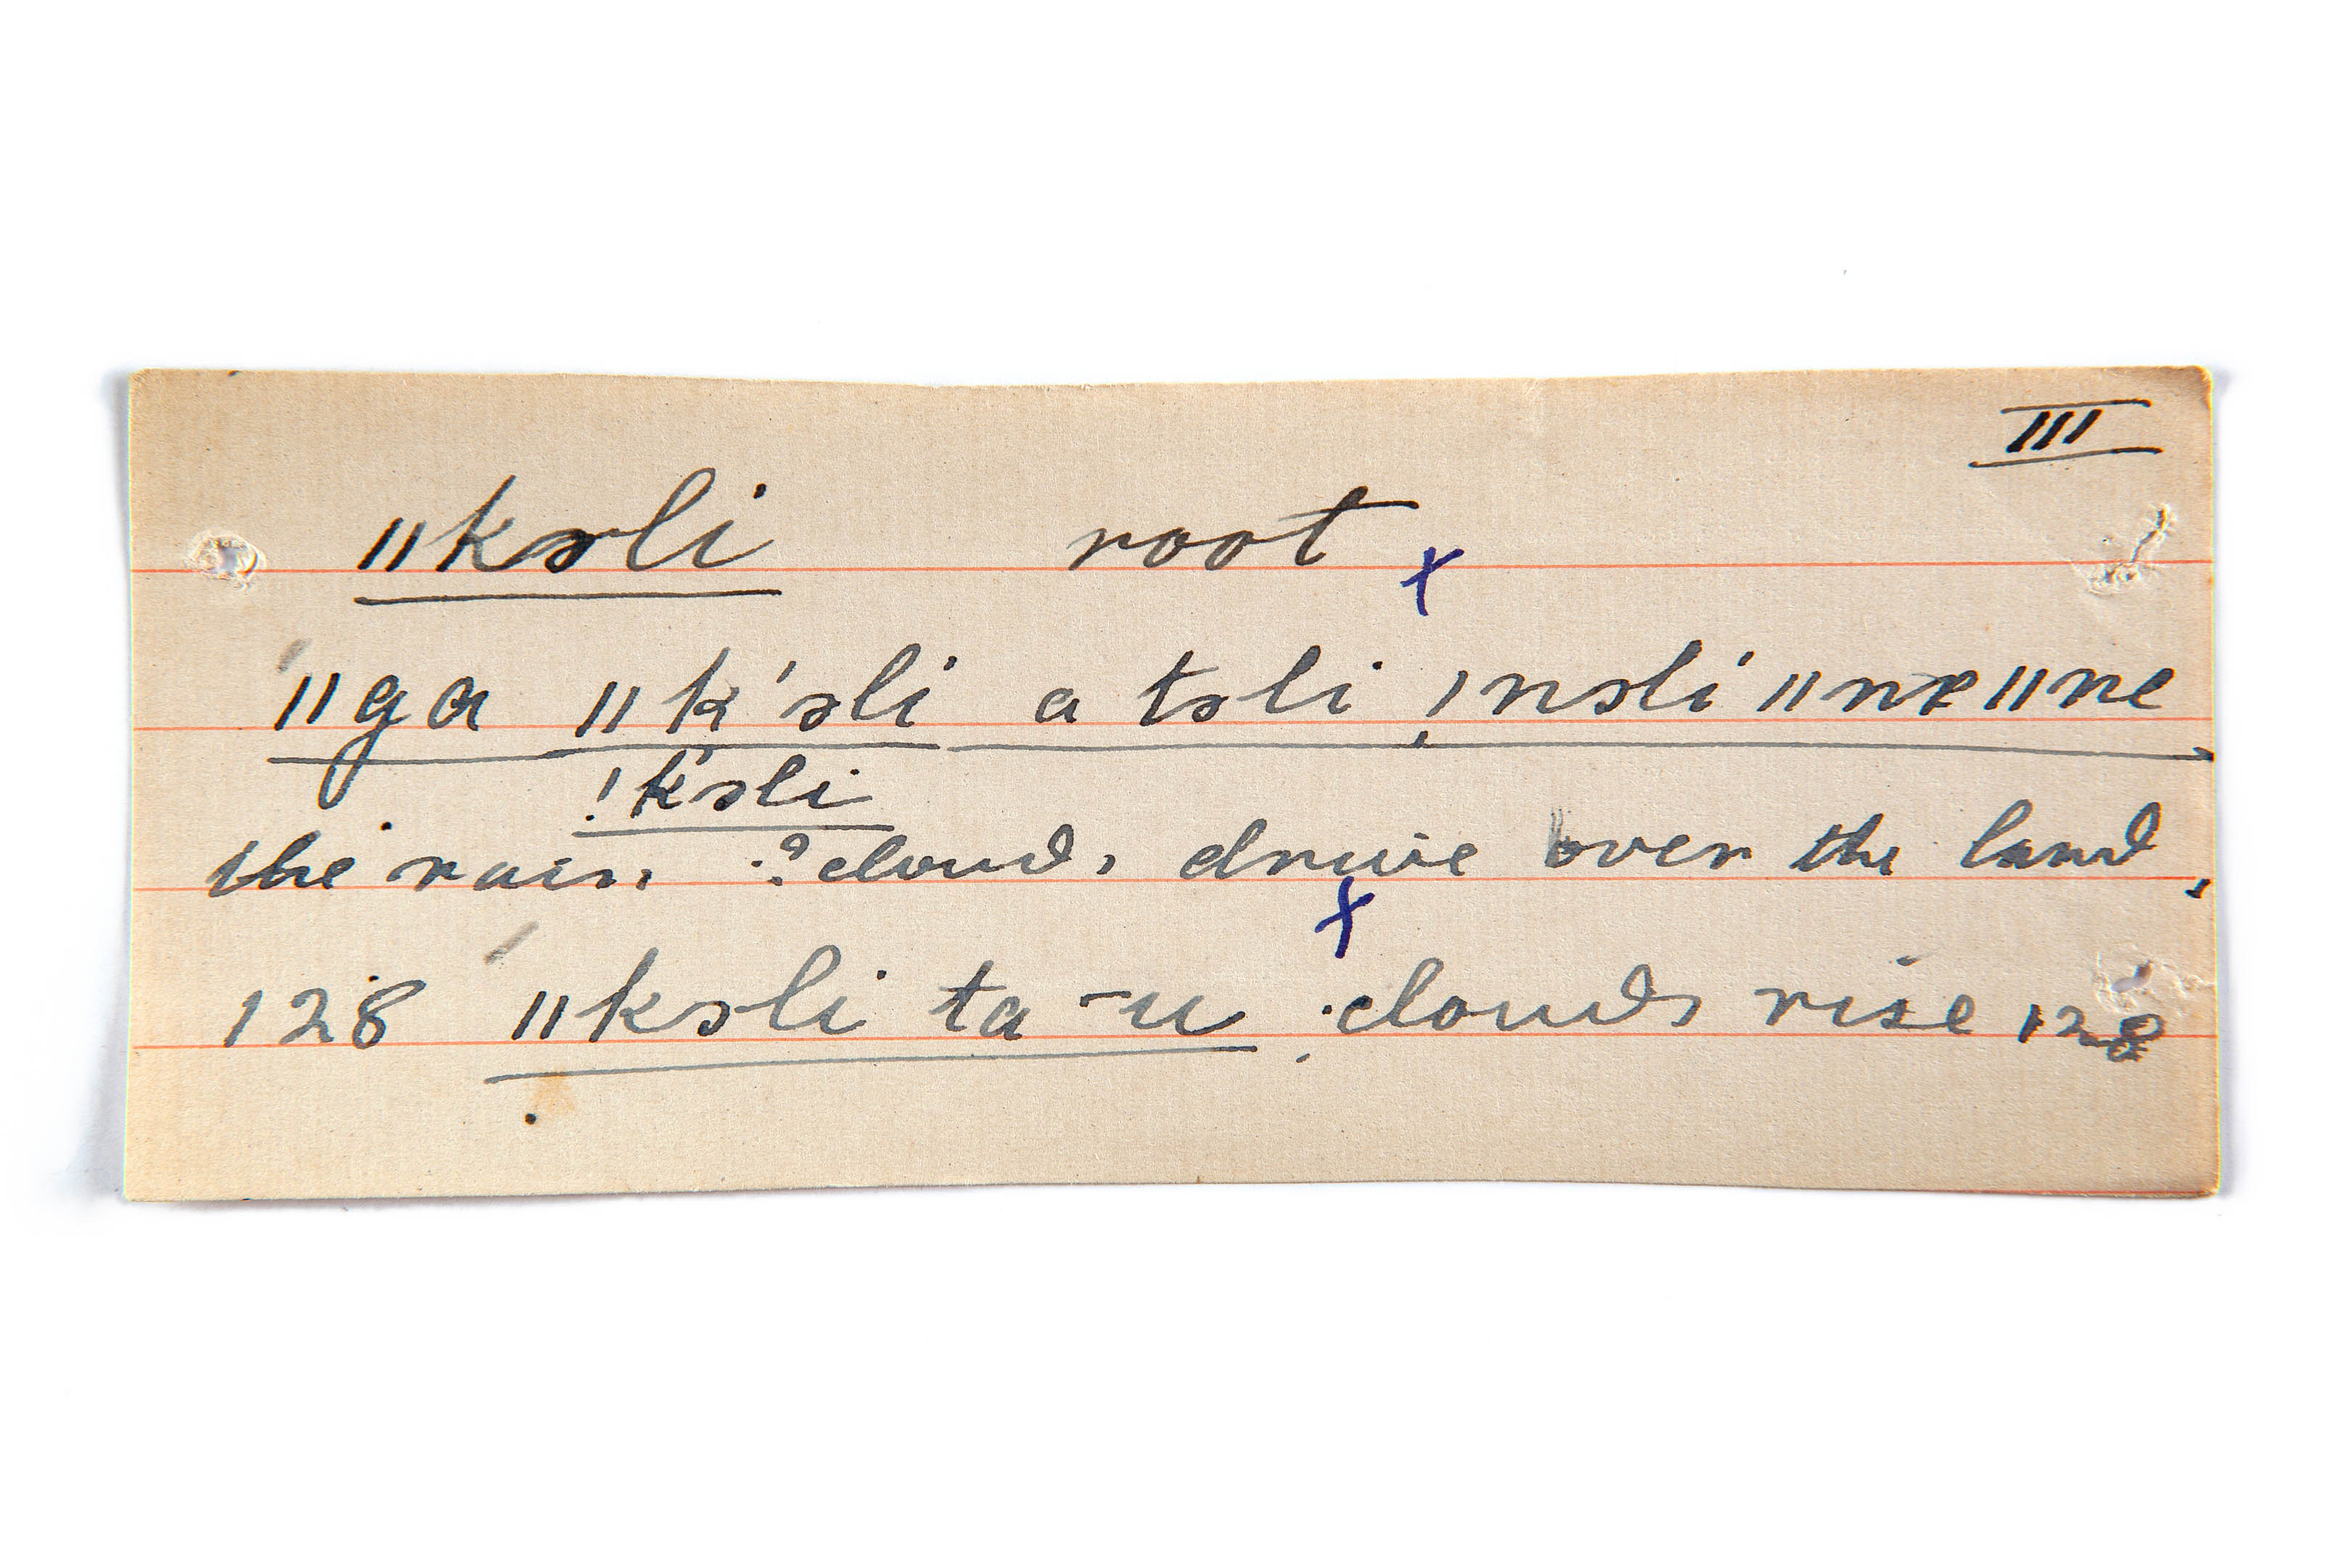 III
ǁkəli root x
ǁga ǁk'əli a təli, !nəli ǁnxǁne
!k'əli
the rain ? clouds drive over the land,
x
128 ǁkəli ta-u clouds rise 128